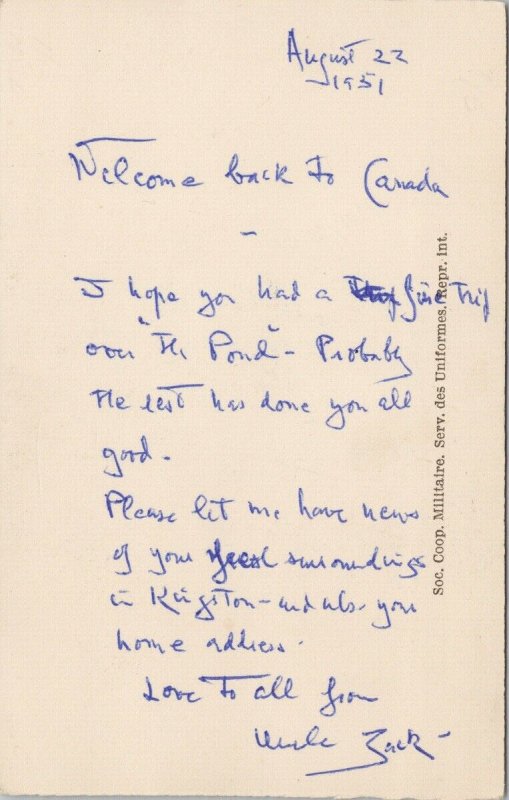 August 22
1951
Welcome back to Canada
-
I hope you had a fine trip
over "The Pond" - Probably
the rest has done you all
good.-
Please let me have news
of your surroundings
in Kingston - your
home address.
Love to all from
Uncle Zack -
Soc. Coop. Militaire. Serv. des Uniformes. Repr. int.